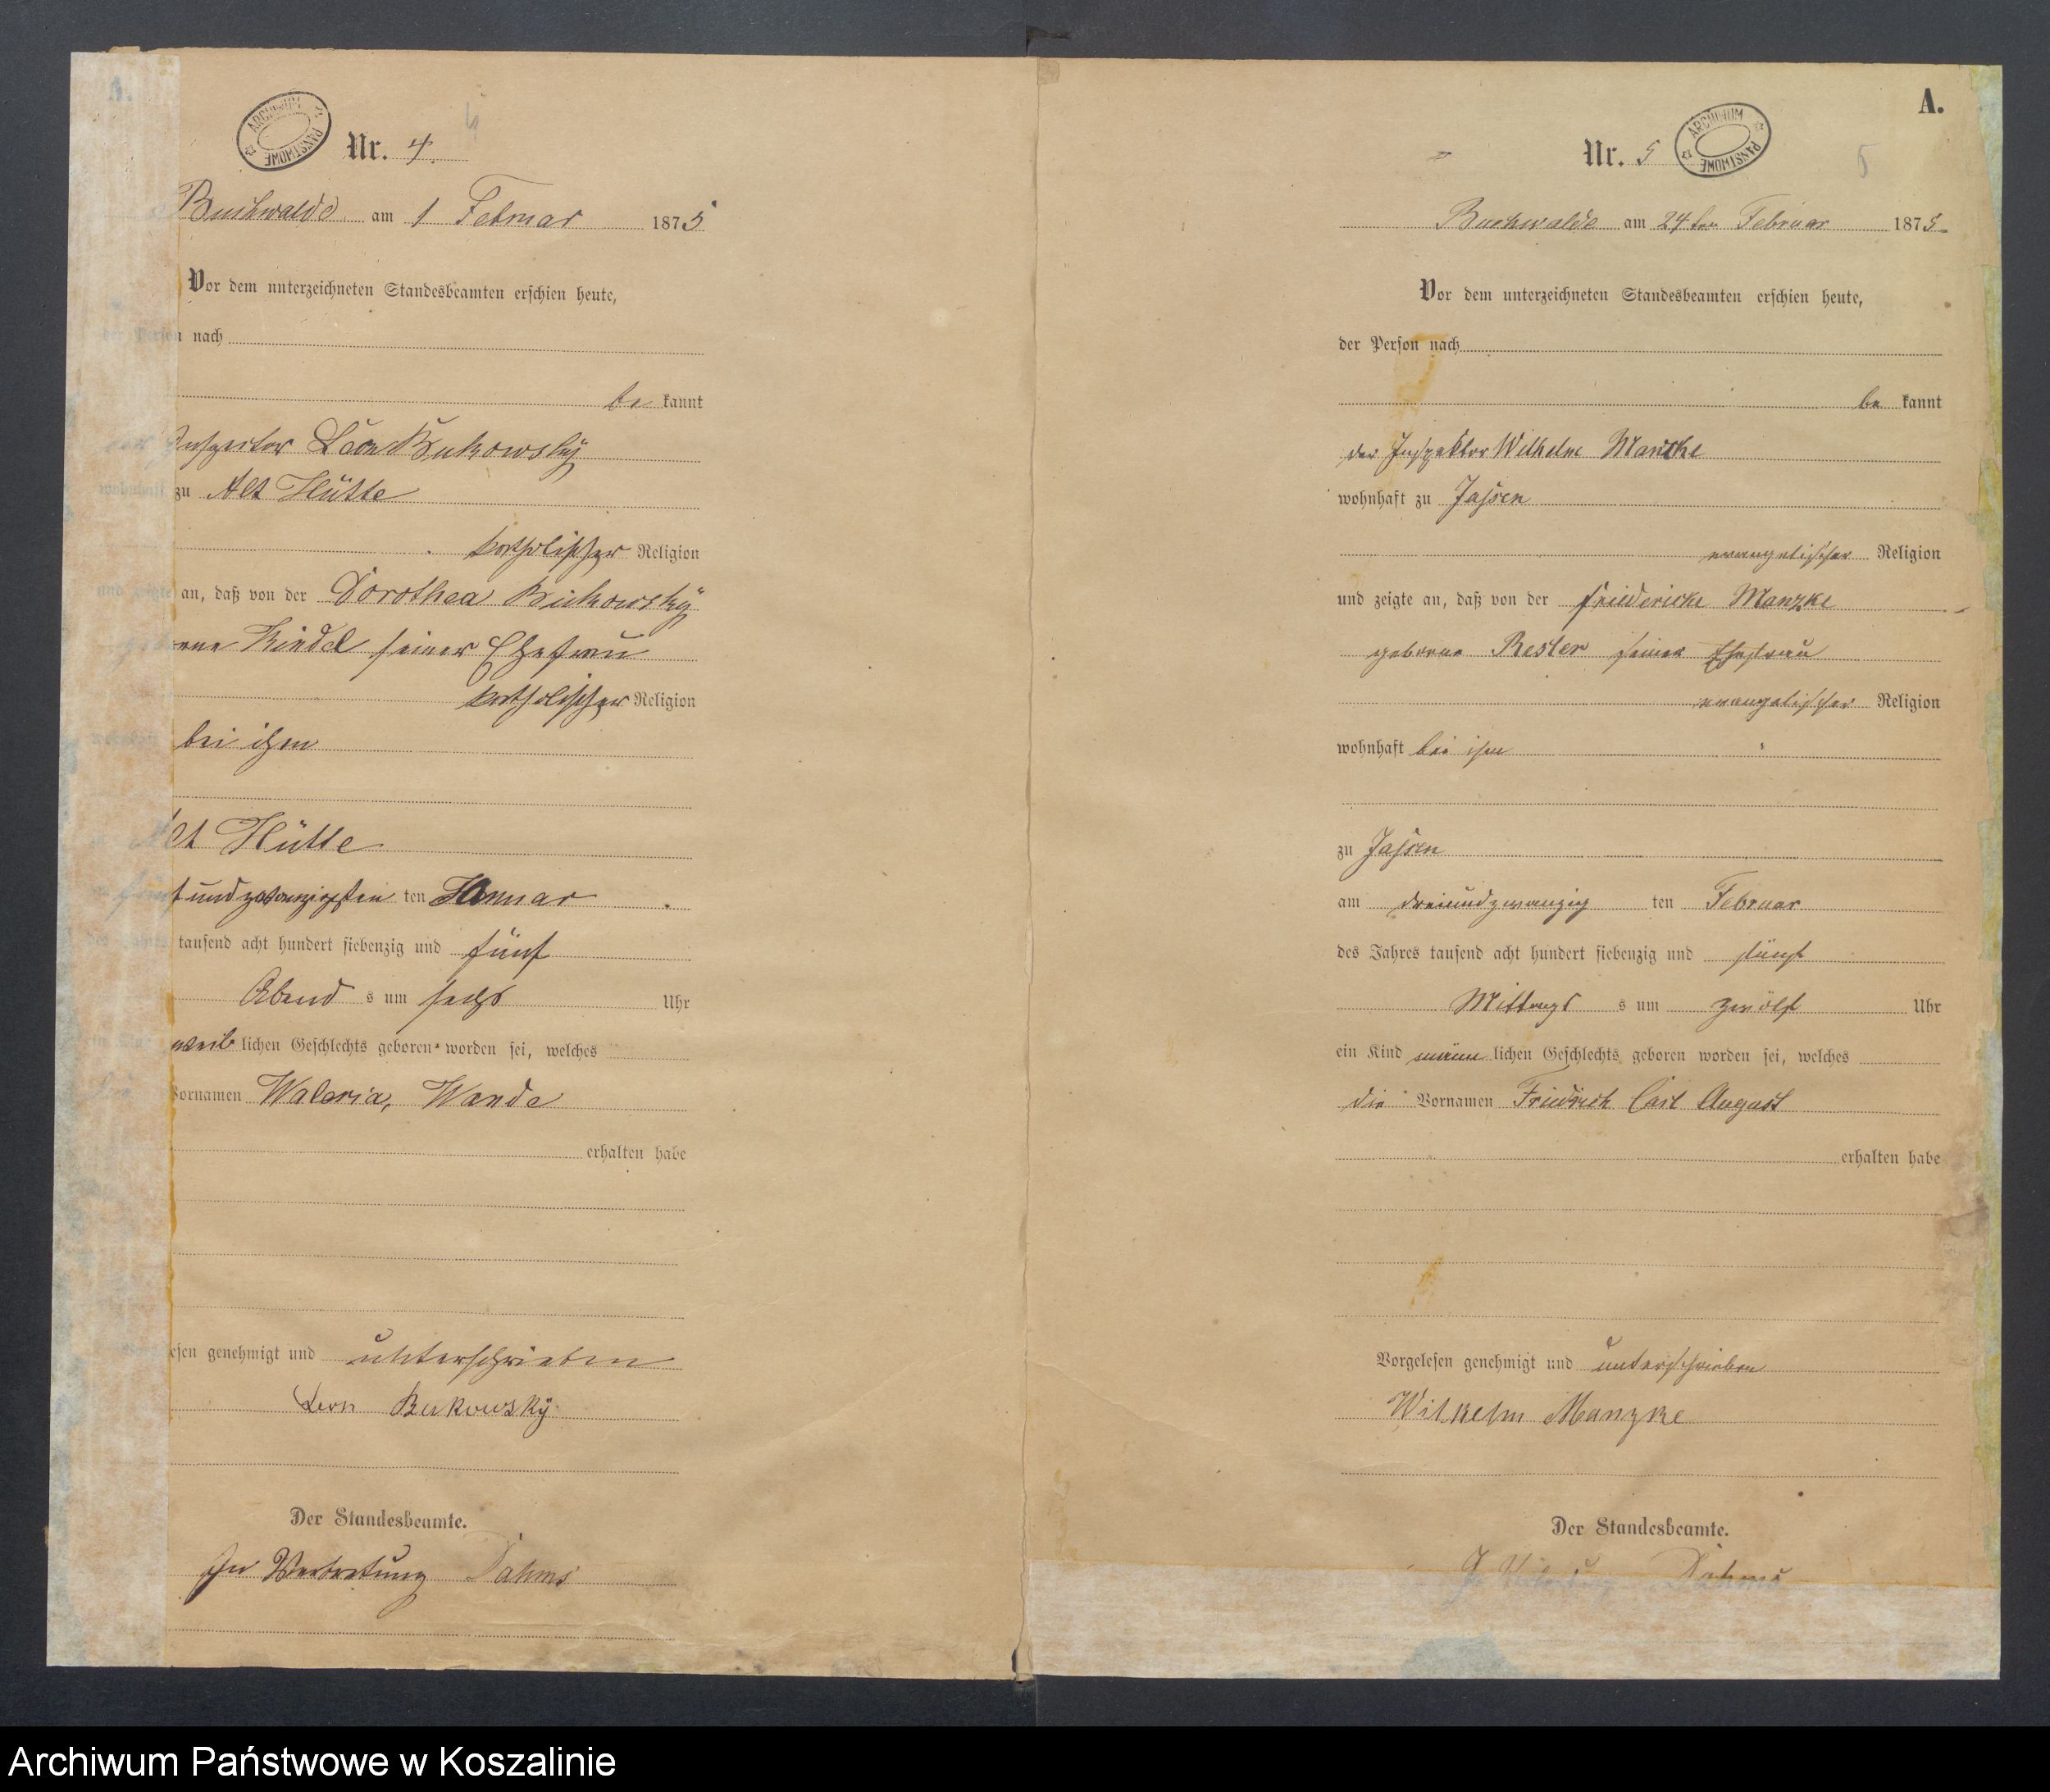 A.
ARCHIWUM PAŃSTWOWE
Nr. 4.
4
Buchwalde am 1 Februar 1875
Vor dem unterzeichneten Standesbeamten erschien heute,
der Person nach
be kannt
der Inspector Leon Bukowsky
wohnhaft zu Alt Hütte
katholischer Religion
und zeigte an, daß von der Dorothea Bukowsky
geborene Riedel seiner Ehefrau
katholischer Religion
wohnhaft bei ihm
zu Alt Hütte
am fünf und zwanzigsten ten Januar
des Jahres tausend acht hundert siebenzig und fünf
Abend s um sechs Uhr
ein Kind weib lichen Geschlechts geboren worden sei, welches
die Vornamen Waleria, Wanda
erhalten habe
Vorgelesen genehmigt und unterschrieben
Leon Bukowsky
Der Standesbeamte.
In Vertretung Dahms
A.
Nr. 5
ARCHIWUM PAŃSTWOWE
5
Buchwalde am 24ten Februar 1875
Vor dem unterzeichneten Standesbeamten erschien heute,
der Person nach
be kannt
der Inspektor Wilhelm Manzke
wohnhaft zu Jassen
evangelischer Religion
und zeigte an, daß von der Friedericke Manzke
geborne Rester seiner Ehefrau
evangelischer Religion
wohnhaft bei ihm
zu Jassen
am dreiundzwanzig ten Februar
des Jahres tausend acht hundert siebenzig und fünf
Mittags s um zwölf Uhr
ein Kind männ lichen Geschlechts geboren worden sei, welches
die Vornamen Friedrich Carl August
erhalten habe
Vorgelesen genehmigt und unterschrieben
Wilhelm Manzke
Der Standesbeamte.
In Vertretung Dahms
Archiwum Państwowe w Koszalinie